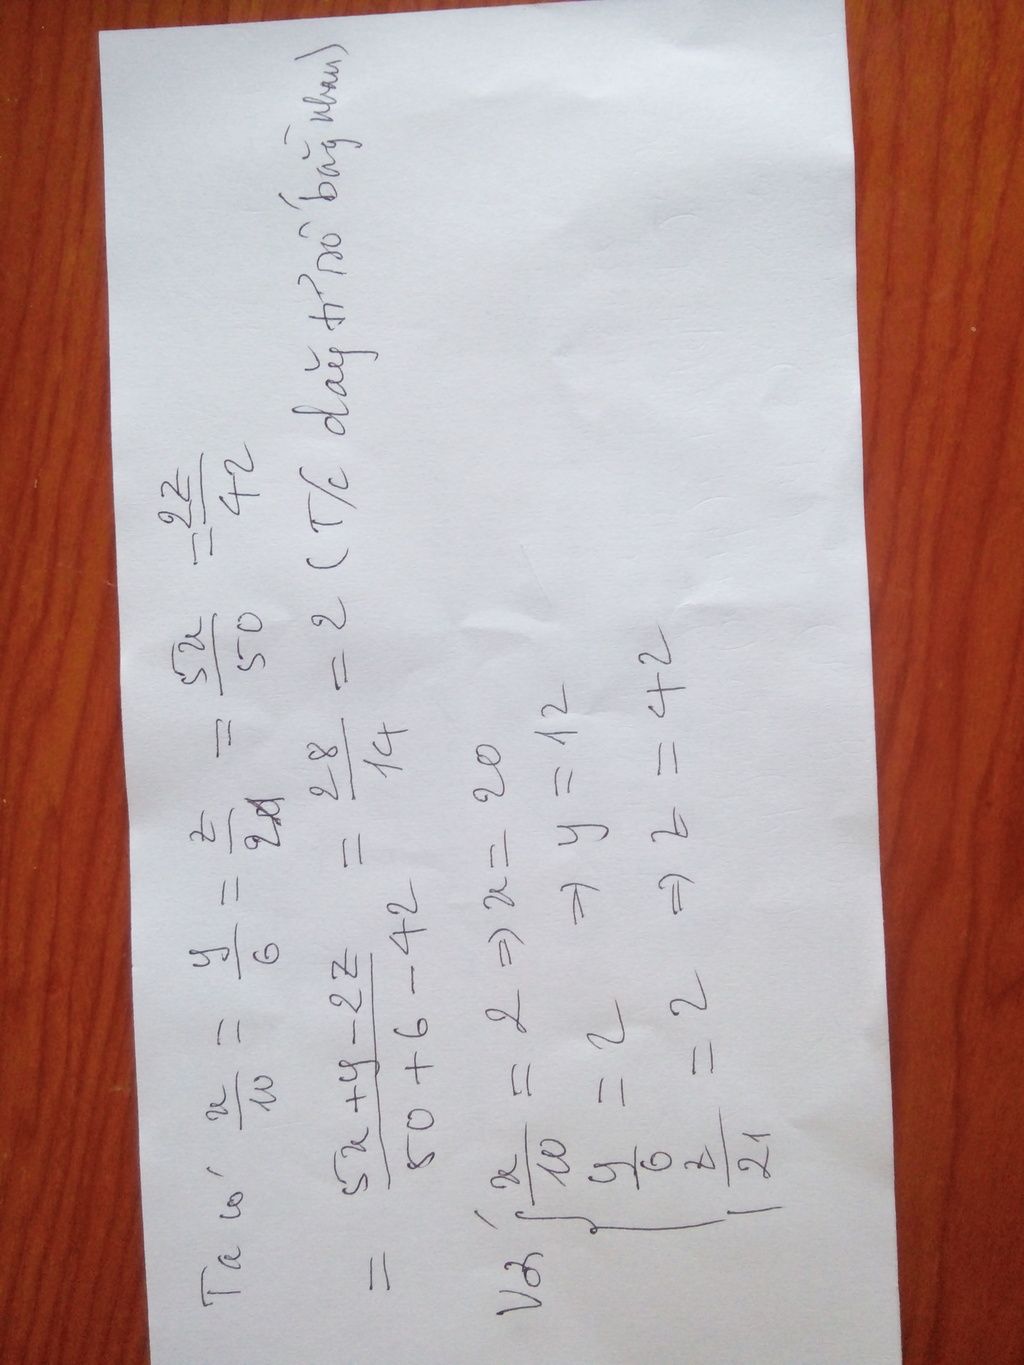 Ta có x/10 = y/6 = z/21 = 5x/50 = 2z/42
= (5x+y-2z)/(50+6-42) = 28/14 = 2 (T/c dãy tỉ số bằng nhau)
Với { x/10 = 2 => x = 20
y/6 = 2 => y = 12
z/21 = 2 => z = 42